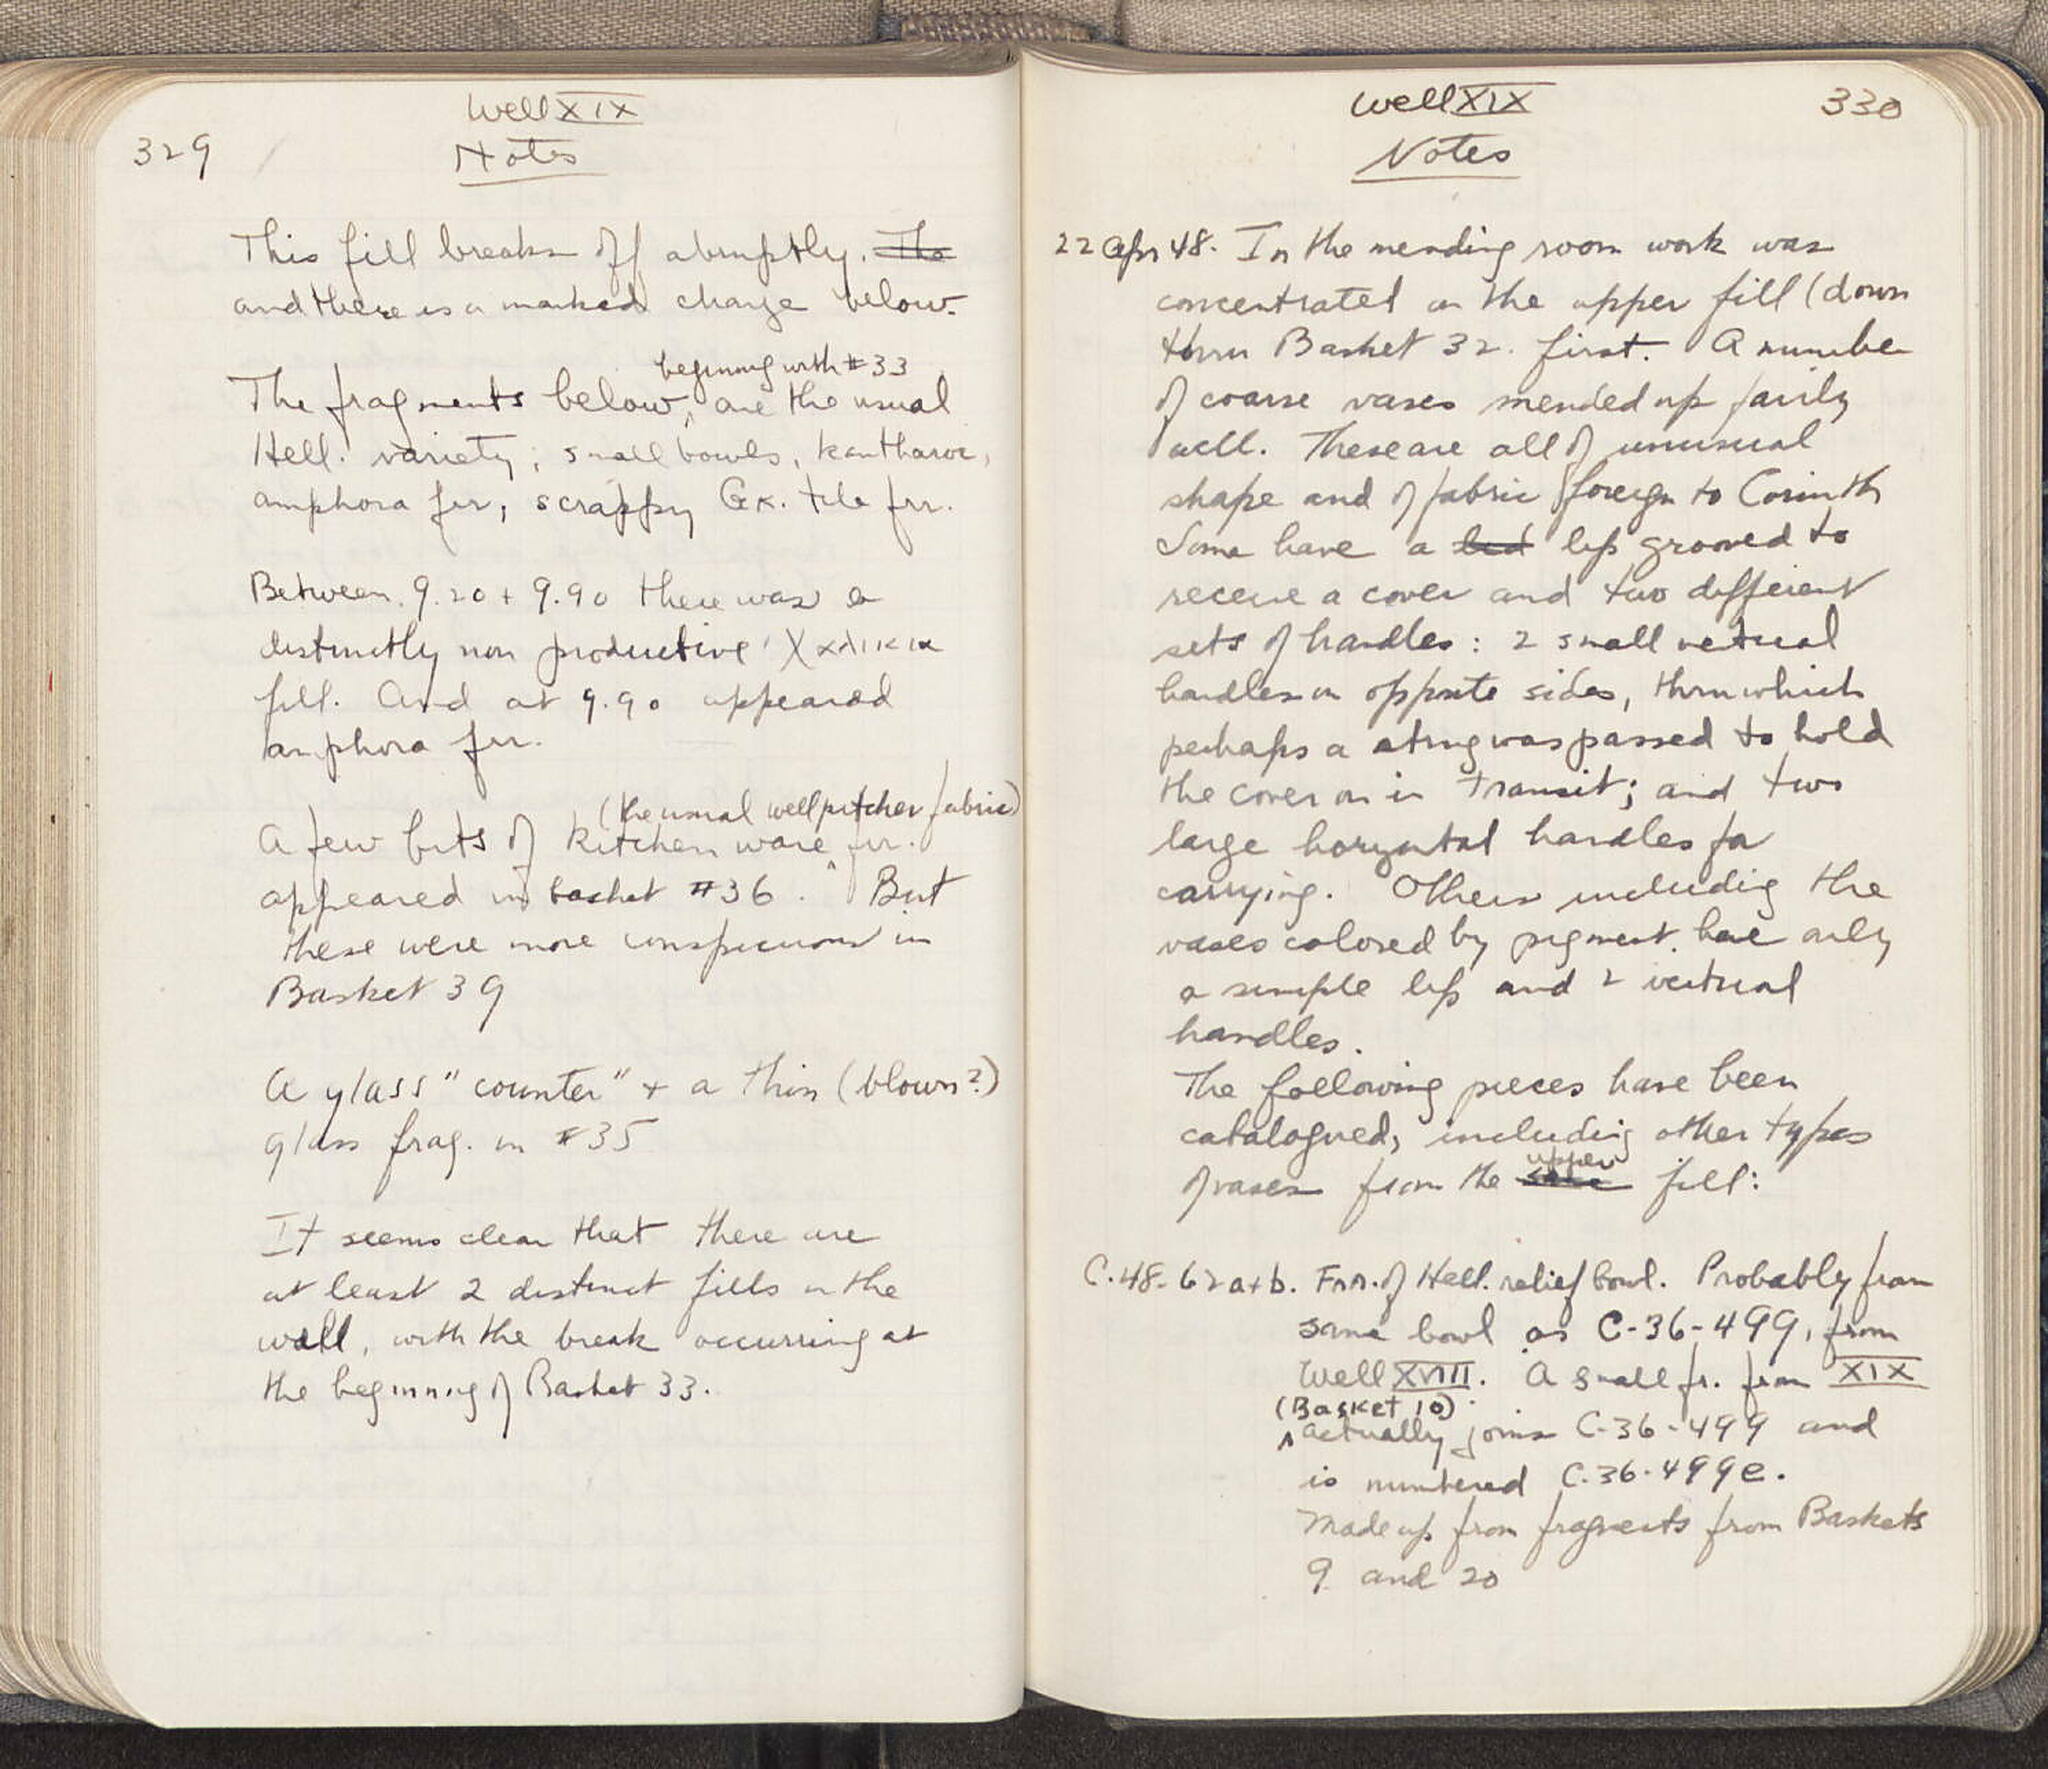 Well XIX
329
Notes
This fill breaks off abruptly. The
and there is a marked change below.
beginning with #33
The fragments below, are the usual
Hell. variety; small bowls, kantharoi,
amphora frr, scrappy Gk. tile frr.
Between 9.20 + 9.90 there was a
distinctly non productive χαλικια
fill. And at 9.90 appeared
amphora frr.
(the usual well pitcher fabric)
A few bits of kitchen ware frr.
appeared in basket #36. But
these were more conspicuous in
Basket 39
A glass "counter" + a thin (blown?)
glass frag. in #35
It seems clear that there are
at least 2 distinct fills in the
well, with the break occurring at
the beginning of Basket 33.
Well XIX
330
Notes
22 Apr 48. In the mending room work was
concentrated on the upper fill (down
thru Basket 32. first. A number
of coarse vases mended up fairly
well. These are all of unusual
shape and of fabric foreign to Corinth
Some have a lid lip grooved to
receive a cover and two different
sets of handles: 2 small vertical
handles on opposite sides, thru which
perhaps a string was passed to hold
the cover on in transit; and two
large horizontal handles for
carrying. Others including the
vases colored by pigment have only
a simple lip and 2 vertical
handles.
The following pieces have been
catalogued, including other types
upper
of vases from the same fill:
C.48-62 a+b. Frr. of Hell. relief bowl. Probably from
same bowl as C-36-499, from
Well XVIII. A small fr. from XIX
(Basket 10)
actually joins C-36-499 and
is numbered C.36-499e.
Made up from fragments from Baskets
9 and 20